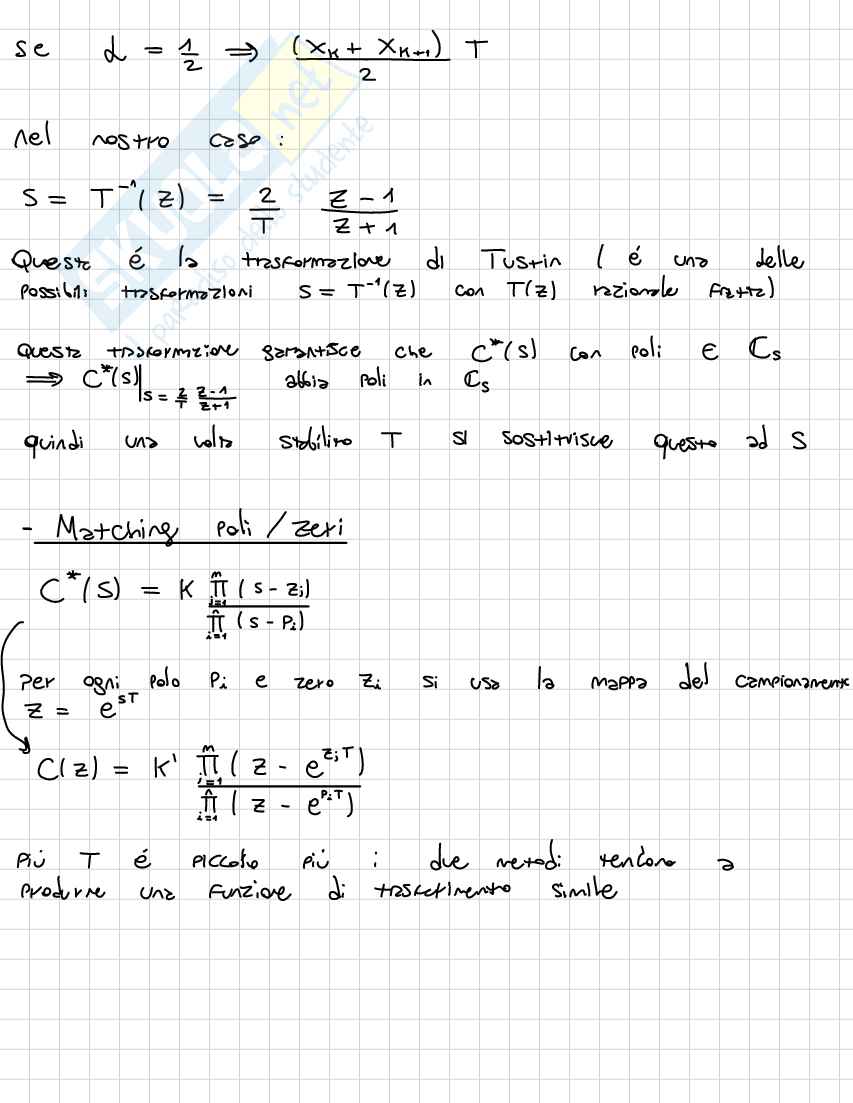 se α = 1/2 ⇒ (x_k + x_{k+1})/2 T
nel nostro caso :
S = T⁻¹(z) = 2/T (z-1)/(z+1)
Questa é la trasformazione di Tustin ( é una delle
possibili trasformazioni s = T⁻¹(z) con T(z) razionale fratta)
Questa trasformazione garantisce che C*(s) con poli ∈ ℂs
⇒ C*(s)|_{s = 2/T (z-1)/(z+1)} abbia poli in ℂs
quindi una volta stabilito T si sostituisce questo ad s
- Matching poli / zeri
C*(s) = K ∏_{i=1}^{m} (s - z_i) / ∏_{i=1}^{n} (s - p_i)
per ogni polo p_i e zero z_i si usa la mappa del campionamento
z = e^{sT}
C(z) = K' ∏_{i=1}^{m} ( z - e^{z_i T}) / ∏_{i=1}^{n} ( z - e^{p_i T})
più T é piccolo più i due metodi tendono a
produrre una funzione di trasferimento simile
SKUOLA.net
il paradiso dello studente